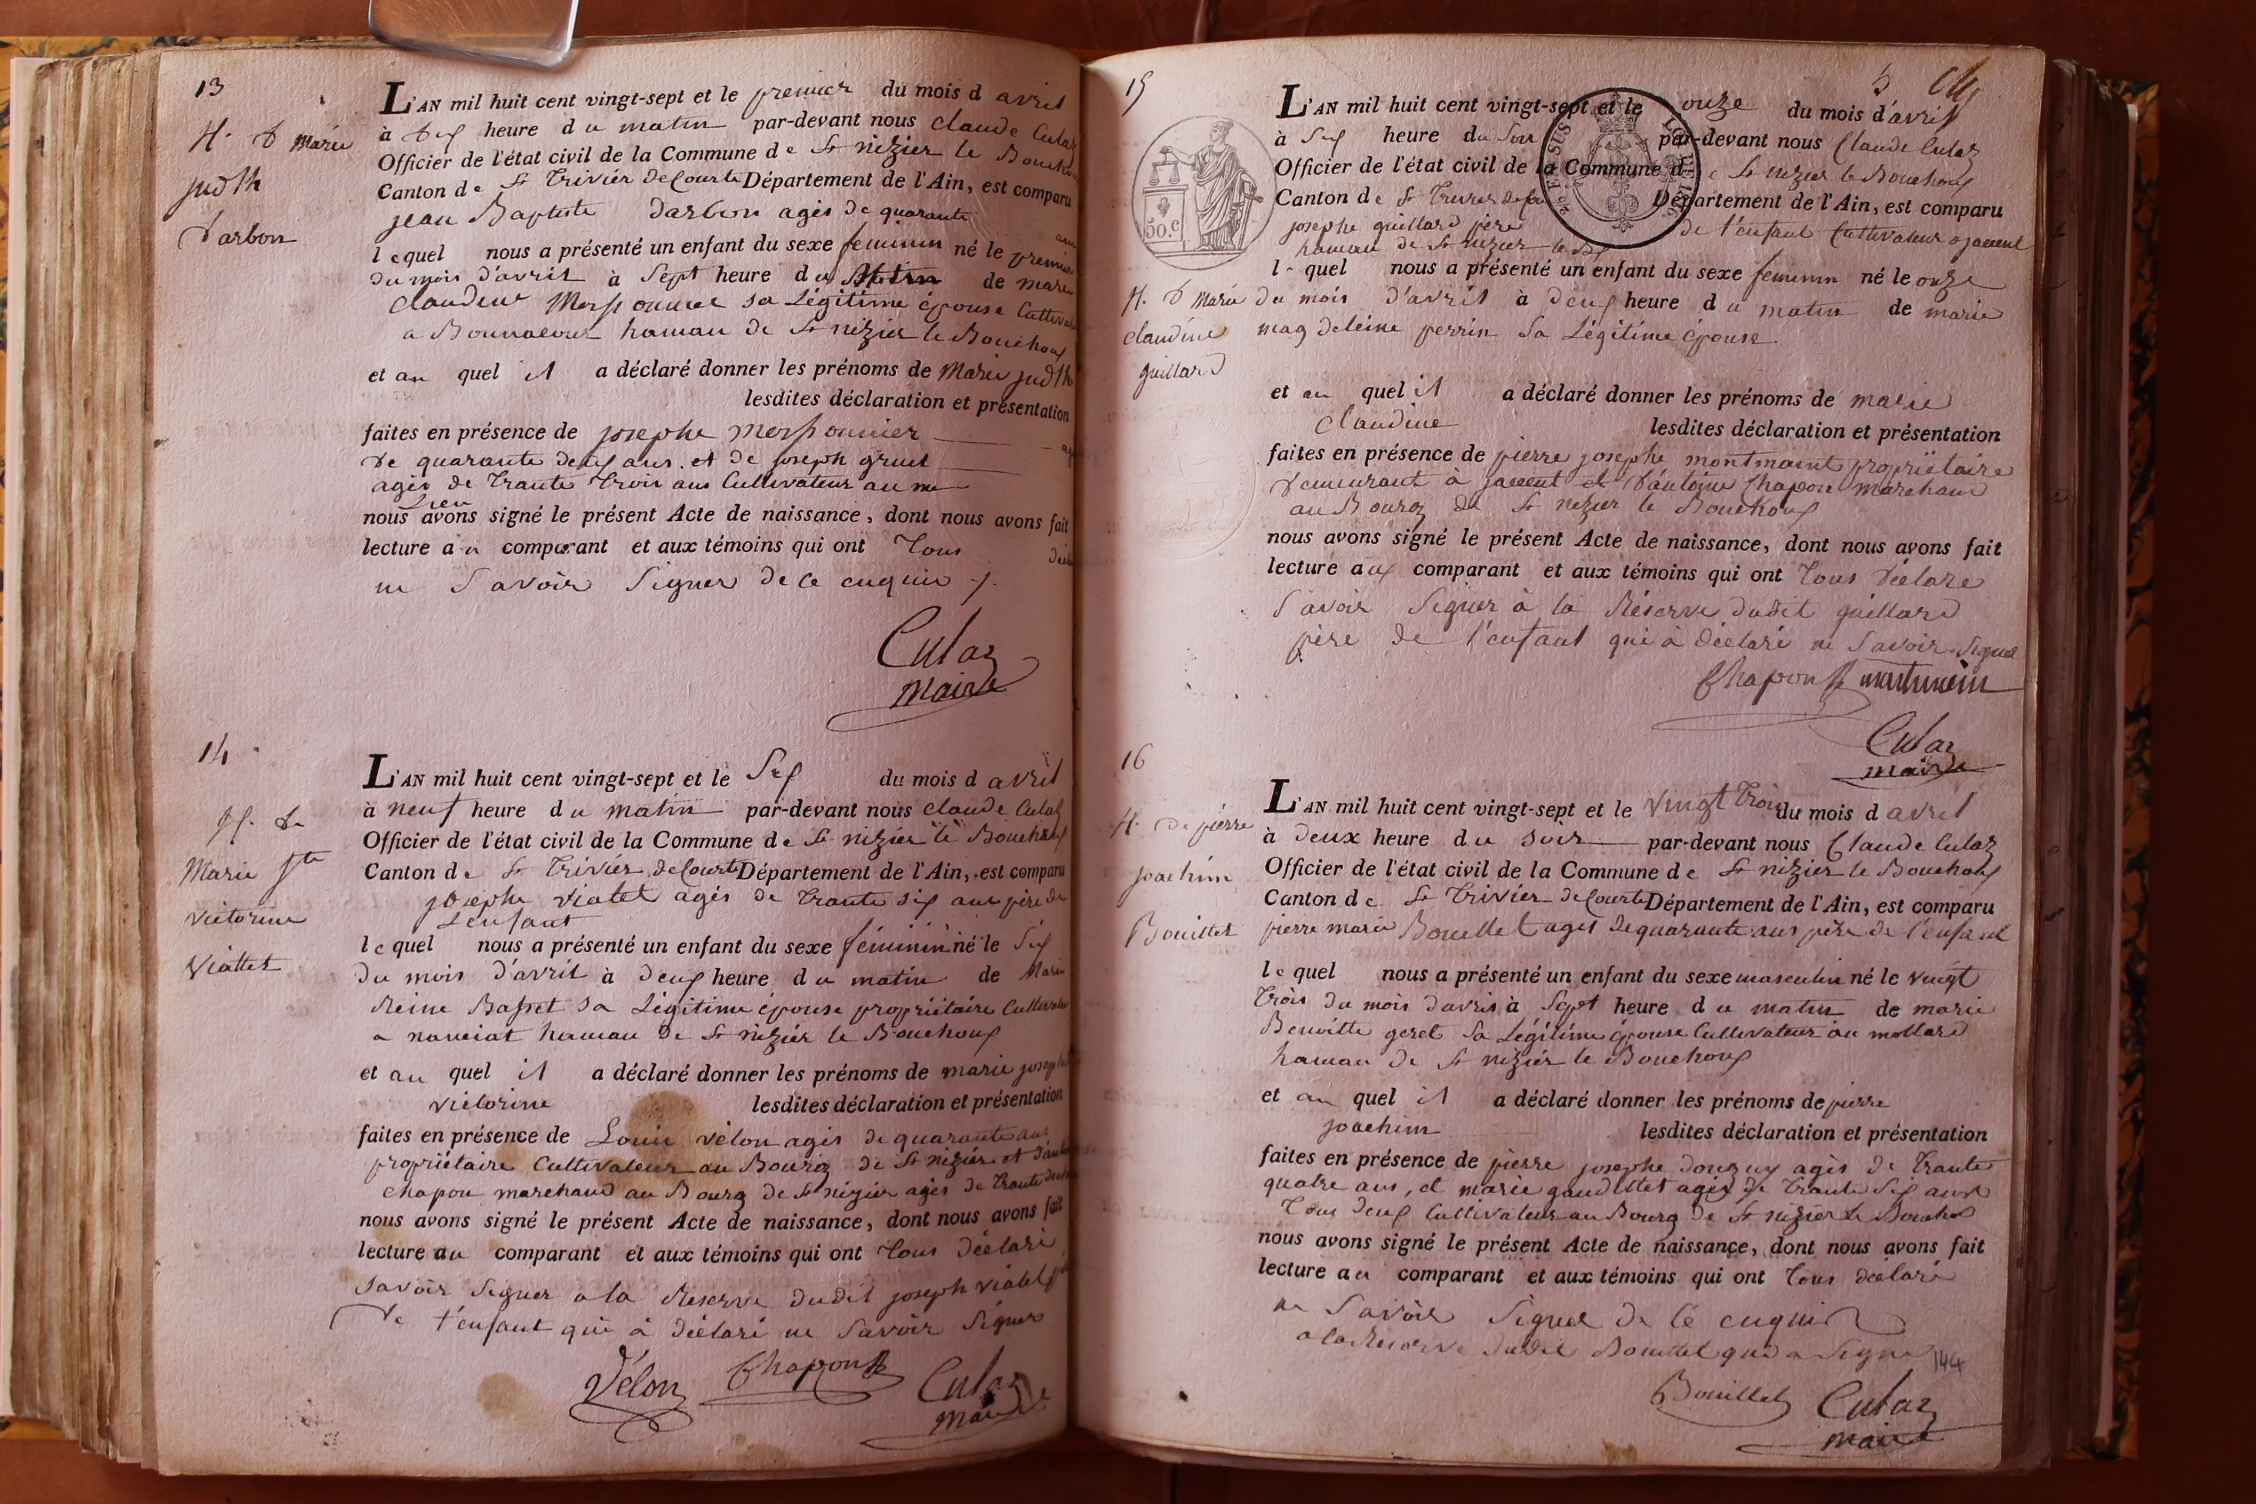 13
N. D Marie
judth
Darbon
L'AN mil huit cent vingt-sept et le premier du mois d avril
à dix heure du matin par-devant nous claude Culaz
Officier de l'état civil de la Commune de St nizier le Bouchoux
Canton de St Trivier de Courte Département de l'Ain, est comparu
jean Baptiste Darbon agés de quarante ans
lequel nous a présenté un enfant du sexe feminin né le premier
du mois d'avril à Sept heure du de marie
claudine sa Légitime épouse Cultivateur
a hamau de St nizier le Bouchoux
et au quel il a déclaré donner les prénoms de Marie judth
lesdites déclaration et présentation
faites en présence de josephe
de quarante deux ans. et de joseph gruel
agés de Trante Trois ans Cultivateur au me
Lieu
nous avons signé le présent Acte de naissance, dont nous avons fait
lecture au comparant et aux témoins qui ont Tous
ne Savoir Signer de ce enquir
Culaz
maire
14
N. de
Marie Jte
victorine
viallet
L'AN mil huit cent vingt-sept et le Six du mois d avril
à neuf heure du matin par-devant nous claude Culaz
Officier de l'état civil de la Commune de St nizier le Bouchoux
Canton de St Trivier de Courte Département de l'Ain, est comparu
josephe vialet agés de Trante six ans père de
Lenfant
lequel nous a présenté un enfant du sexe féminin né le Six
du mois d'avril à deux heure du matin de Marie
Reine Basset sa Légitime épouse propriétaire Cultivateur
a hamau de St nizier le Bouchoux
et au quel il a déclaré donner les prénoms de marie josephe
victorine lesdites déclaration et présentation
faites en présence de Louis vélon agés de quarante ans
propriétaire Cultivateur au Bourg de St nizier et d'antoine
chapon marchand au Bourg de St nizier agés de Trante deux
nous avons signé le présent Acte de naissance, dont nous avons fait
lecture au comparant et aux témoins qui ont Tous déclaré
savoir Signer a la Réserve dudit joseph vialet père
de l'enfant qui à déclaré ne Savoir Signer
Vélon Chapon Culaz
maire
15
5
50. c
N. D Marie
claudine
guillard
L'AN mil huit cent vingt-sept et le onze du mois d'avril
à Six heure du Soir par-devant nous Claude Culaz
Officier de l'état civil de la Commune de St nizier le Bouchoux
Canton de St Trivier de Département de l'Ain, est comparu
josephe guillard père de l'enfant Cultivateur a
hamau de St nizier le
lequel nous a présenté un enfant du sexe feminin né le onze
du mois d'avril à deux heure du matin de marie
magdeleine perrin Sa Légitime épouse
et au quel il a déclaré donner les prénoms de marie
claudine lesdites déclaration et présentation
faites en présence de pierre josephe propriétaire
demeurant à et d'antoine Chapon marchand
au Bourg de St nizier le Bouchoux
nous avons signé le présent Acte de naissance, dont nous avons fait
lecture aux comparant et aux témoins qui ont Tous déclare
Savoir Signer à la Réserve dudit guillard
père de l'enfant qui à déclaré ne Savoir Signer
Chapon
Culaz
maire
16
N. de pierre
joachim
Bouillet
L'AN mil huit cent vingt-sept et le vingt Trois du mois d avril
à deux heure du soir par-devant nous Claude Culaz
Officier de l'état civil de la Commune de St nizier le Bouchoux
Canton de St Trivier de Courte Département de l'Ain, est comparu
pierre marie Bouillet agés de quarante ans père de l'enfant
lequel nous a présenté un enfant du sexe masculin né le vingt
Trois du mois davril à Sept heure du matin de marie
geret Sa Légitime épouse Cultivateur au mollard
hamau de St nizier le Bouchoux
et au quel il a déclaré donner les prénoms de pierre
joachim lesdites déclaration et présentation
faites en présence de pierre josephe agés de Trante
quatre ans, et marie gaudillet agés de Trante Six ans
Tous deux Cultivateurs au Bourg de St nizier le Bouchoux
nous avons signé le présent Acte de naissance, dont nous avons fait
lecture au comparant et aux témoins qui ont Tous déclaré
ne Savoir Signer de ce enquir
a la Réserve dudit Bouillet qui a Signé
144
Bouillet Culaz
maire